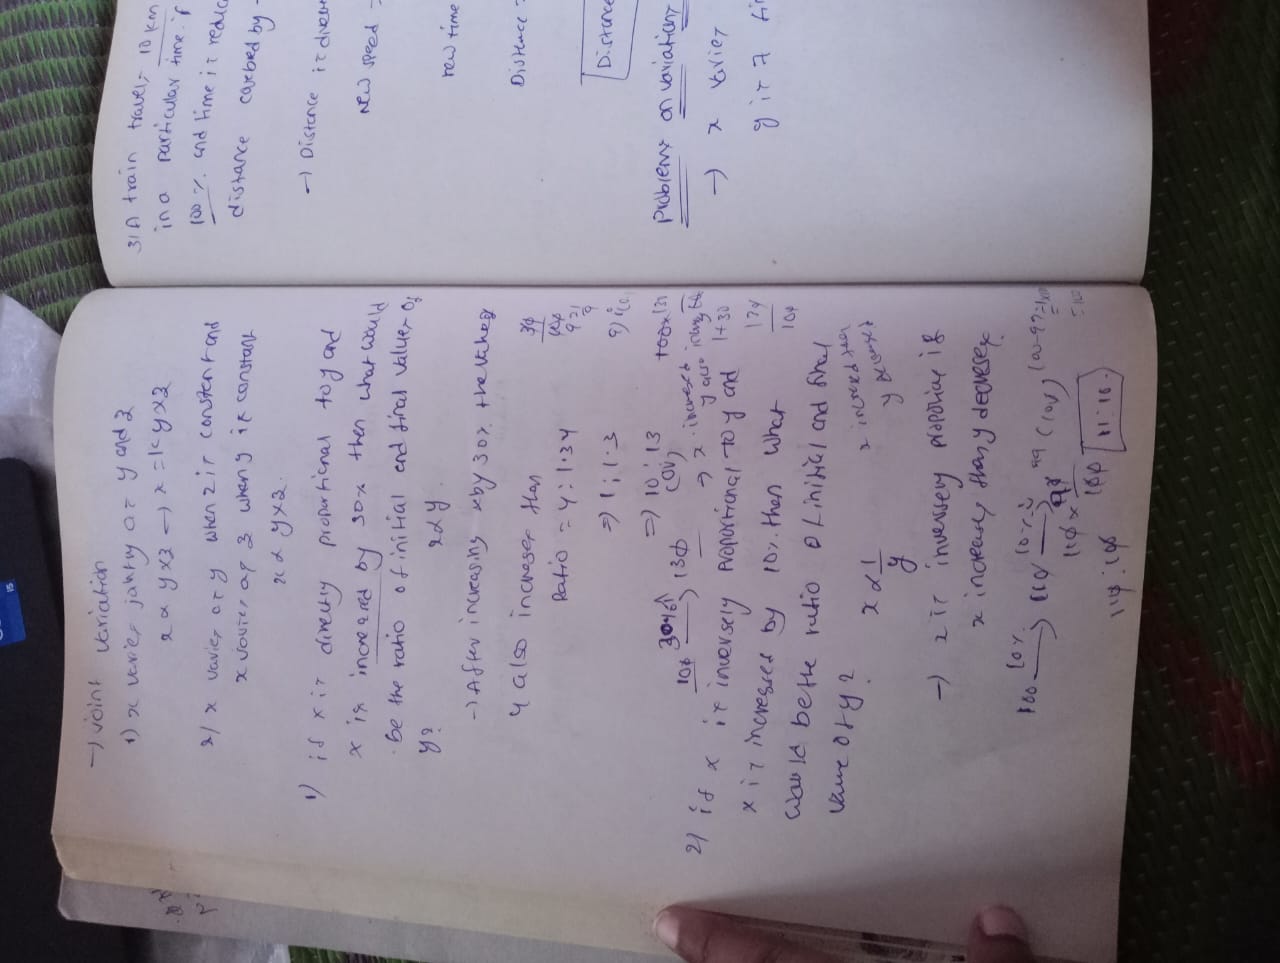 → Joint variation
1) x varies jointly as y and z
x α y x z → x = k y x z
2) x varies as y when z is constant and
x varies as z when y is constant
x α y x z.
1) if x is directly proportional to y and
x is increased by 30% then what would
be the ratio of initial and final values of
y?
x α y.
→ After increasing x by 30% the value of
y also increases then
Ratio = y : 1.3y
⇒ 1 : 1.3
⇒ 10 : 13
(or)
30%↑
100 → 130
2) if x is inversely proportional to y and
x is increases by 10% then what
would be the ratio of initial and final
value of y?
x α 1/y
→ x is inversely proportional if
x increases then y decreases
100 10% → 110
110 : 100
11 : 10.
3) A train travels 10 km
in a particular time. if
100% and time is reduc
distance covered by
→ Distance is
New speed =
new time
Distance =
Distance
Problems on variation
→ x varies
y is 7